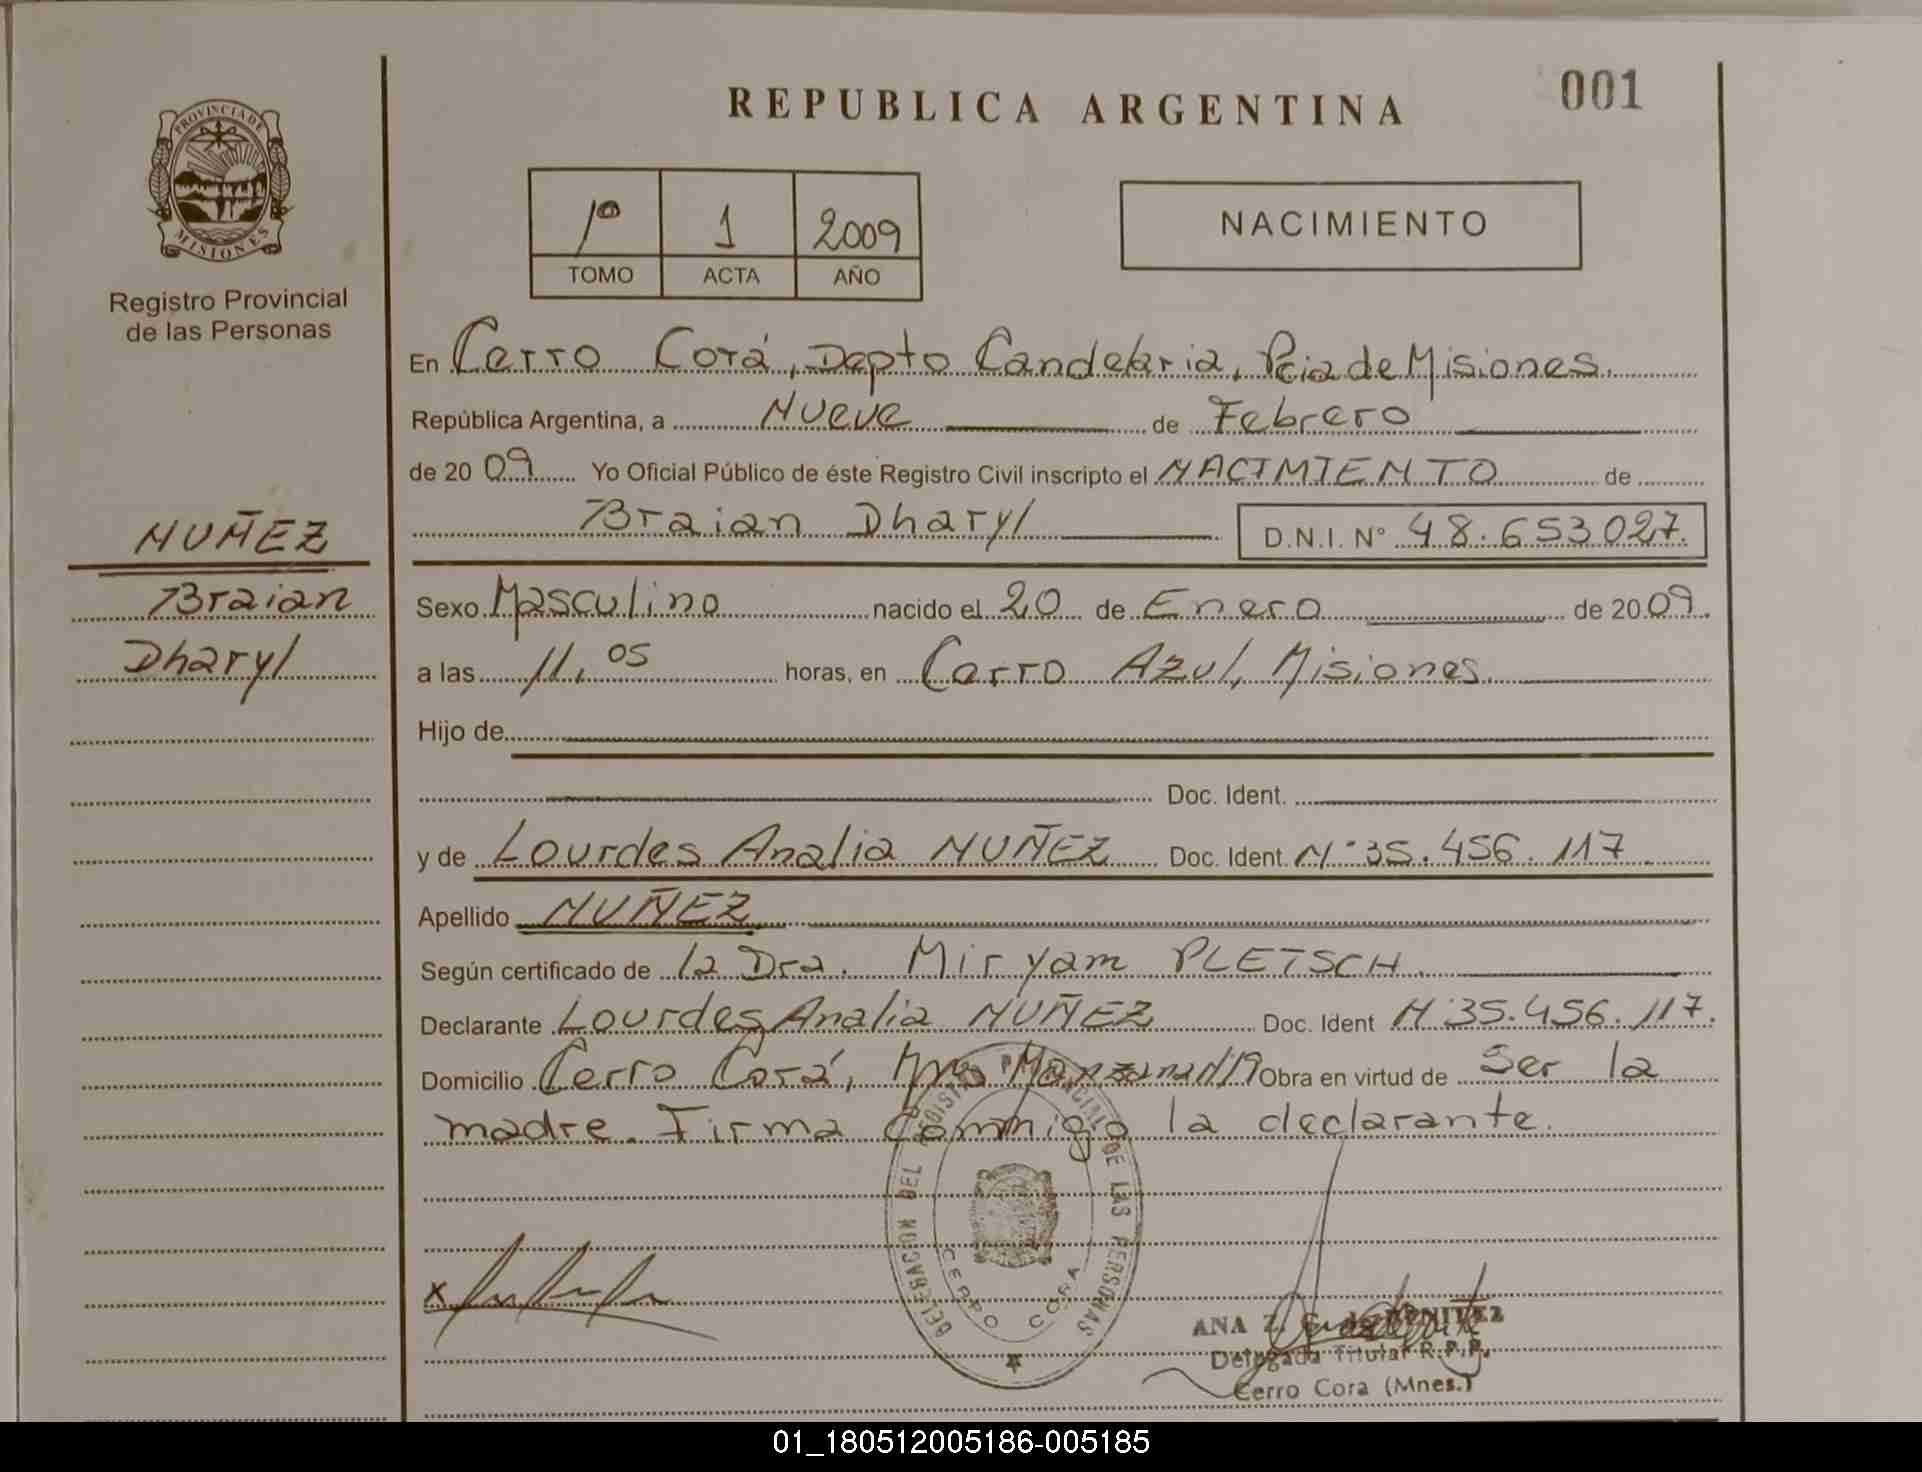 REPUBLICA ARGENTINA
001
PROVINCIA DE
MISIONES
Registro Provincial
de las Personas
1º 1 2009
TOMO ACTA AÑO
NACIMIENTO
En Cerro Corá, Depto Candelaria, Pcia de Misiones.
República Argentina, a Nueve de Febrero
de 20 09 Yo Oficial Público de éste Registro Civil inscripto el NACIMIENTO de
Braian Dharyl D.N.I. Nº 48.653027.
NUÑEZ
Braian
Dharyl
Sexo Masculino nacido el 20 de Enero de 20 09.
a las 11,05 horas, en Cerro Azul, Misiones.
Hijo de
Doc. Ident.
y de Lourdes Analia NUÑEZ Doc. Ident N° 35.456.117
Apellido NUÑEZ
Según certificado de la Dra. Miryam PLETSCH.
Declarante Lourdes Analia NUÑEZ Doc. Ident N° 35.456.117.
Domicilio Cerro Corá, Obra en virtud de Ser la
madre. Firma Commigo la declarante.
DELEGACION DEL REGISTRO PROVINCIAL DE LAS PERSONAS
CERRO CORA
x
ANA Z. BENITEZ
Delegada Titular R.P.P.
Cerro Cora (Mnes.)
01_180512005186-005185